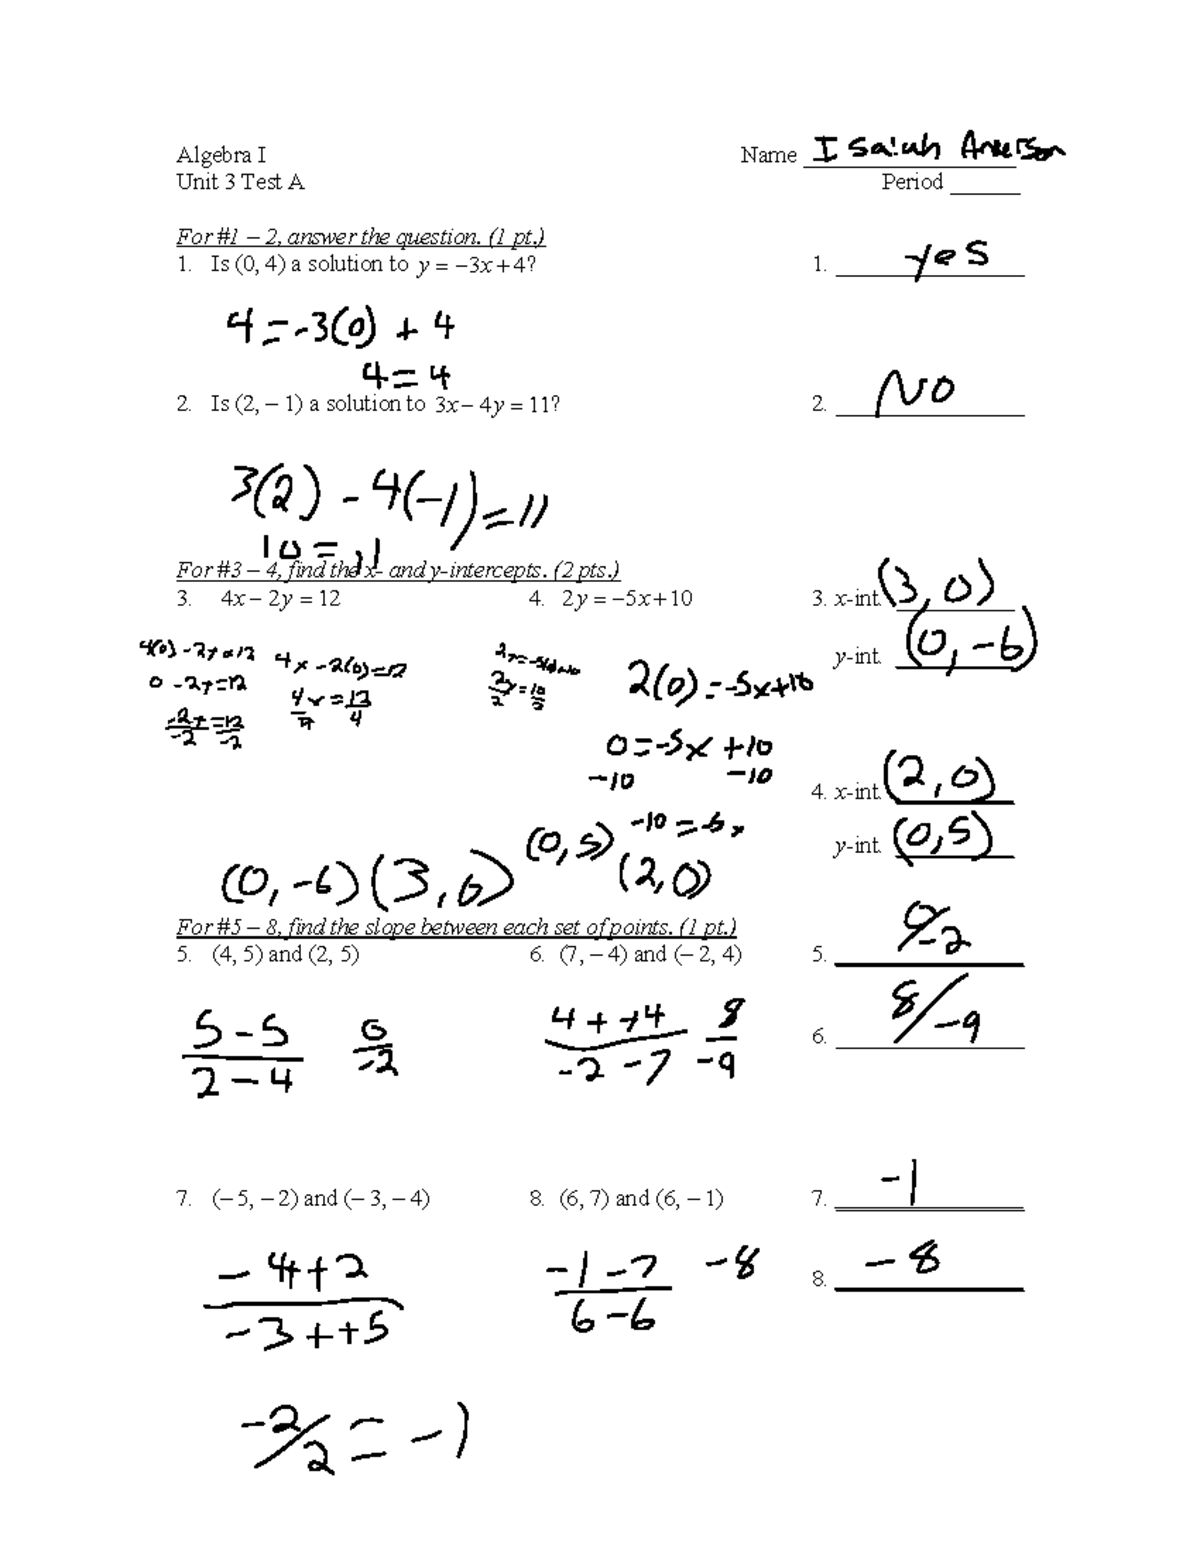 Algebra I
Name Isaiah Anerson
Unit 3 Test A
Period ______
For #1 – 2, answer the question. (1 pt.)
1. Is (0, 4) a solution to y = −3x + 4?
1. yes
4 = -3(0) + 4
4 = 4
2. Is (2, – 1) a solution to 3x − 4y = 11?
2. NO
3(2) - 4(-1) = 11
10 = 11
For #3 – 4, find the x- and y-intercepts. (2 pts.)
3. 4x − 2y = 12
4. 2y = −5x + 10
3. x-int. (3, 0)
y-int. (0, -6)
4(0) - 2y = 12
0 - 2y = 12
-2y/-2 = 12/-2
4x - 2(0) = 12
4x/4 = 12/4
2y = -5(0)+10
2y/2 = 10/2
2(0) = -5x+10
0 = -5x + 10
-10 -10
-10 = -5x
4. x-int. (2, 0)
y-int. (0, 5)
(0, -6) (3, 0)
(0, 5)
(2, 0)
For #5 – 8, find the slope between each set of points. (1 pt.)
5. (4, 5) and (2, 5)
6. (7, – 4) and (– 2, 4)
5. 0/-2
6. 8/-9
5 - 5
2 - 4
0/-2
4 + +4
-2 - 7
8/-9
7. (– 5, – 2) and (– 3, – 4)
8. (6, 7) and (6, – 1)
7. -1
8. -8
-4 + 2
-3 + +5
-1 - 7
6 - 6
-8
-2/2 = -1